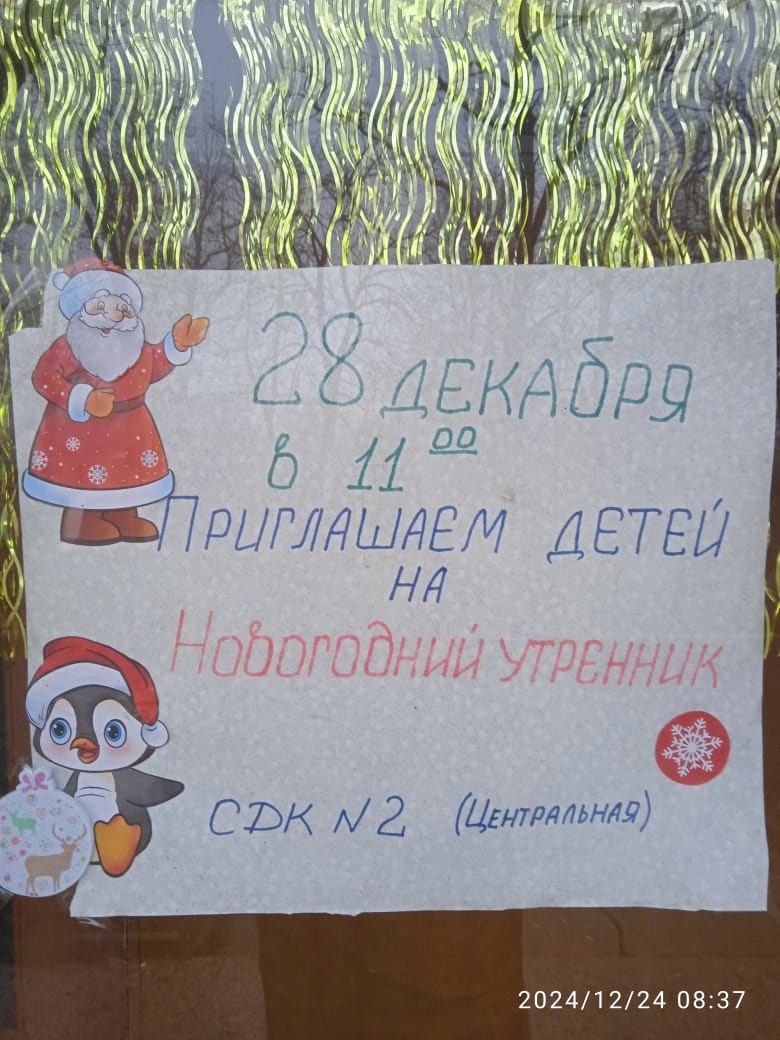 28 ДЕКАБРЯ
в 11 00
ПРИГЛАШАЕМ ДЕТЕЙ
НА
НОВОГОДНИЙ УТРЕННИК
СДК N 2 (ЦЕНТРАЛЬНАЯ)
2024/12/24 08:37